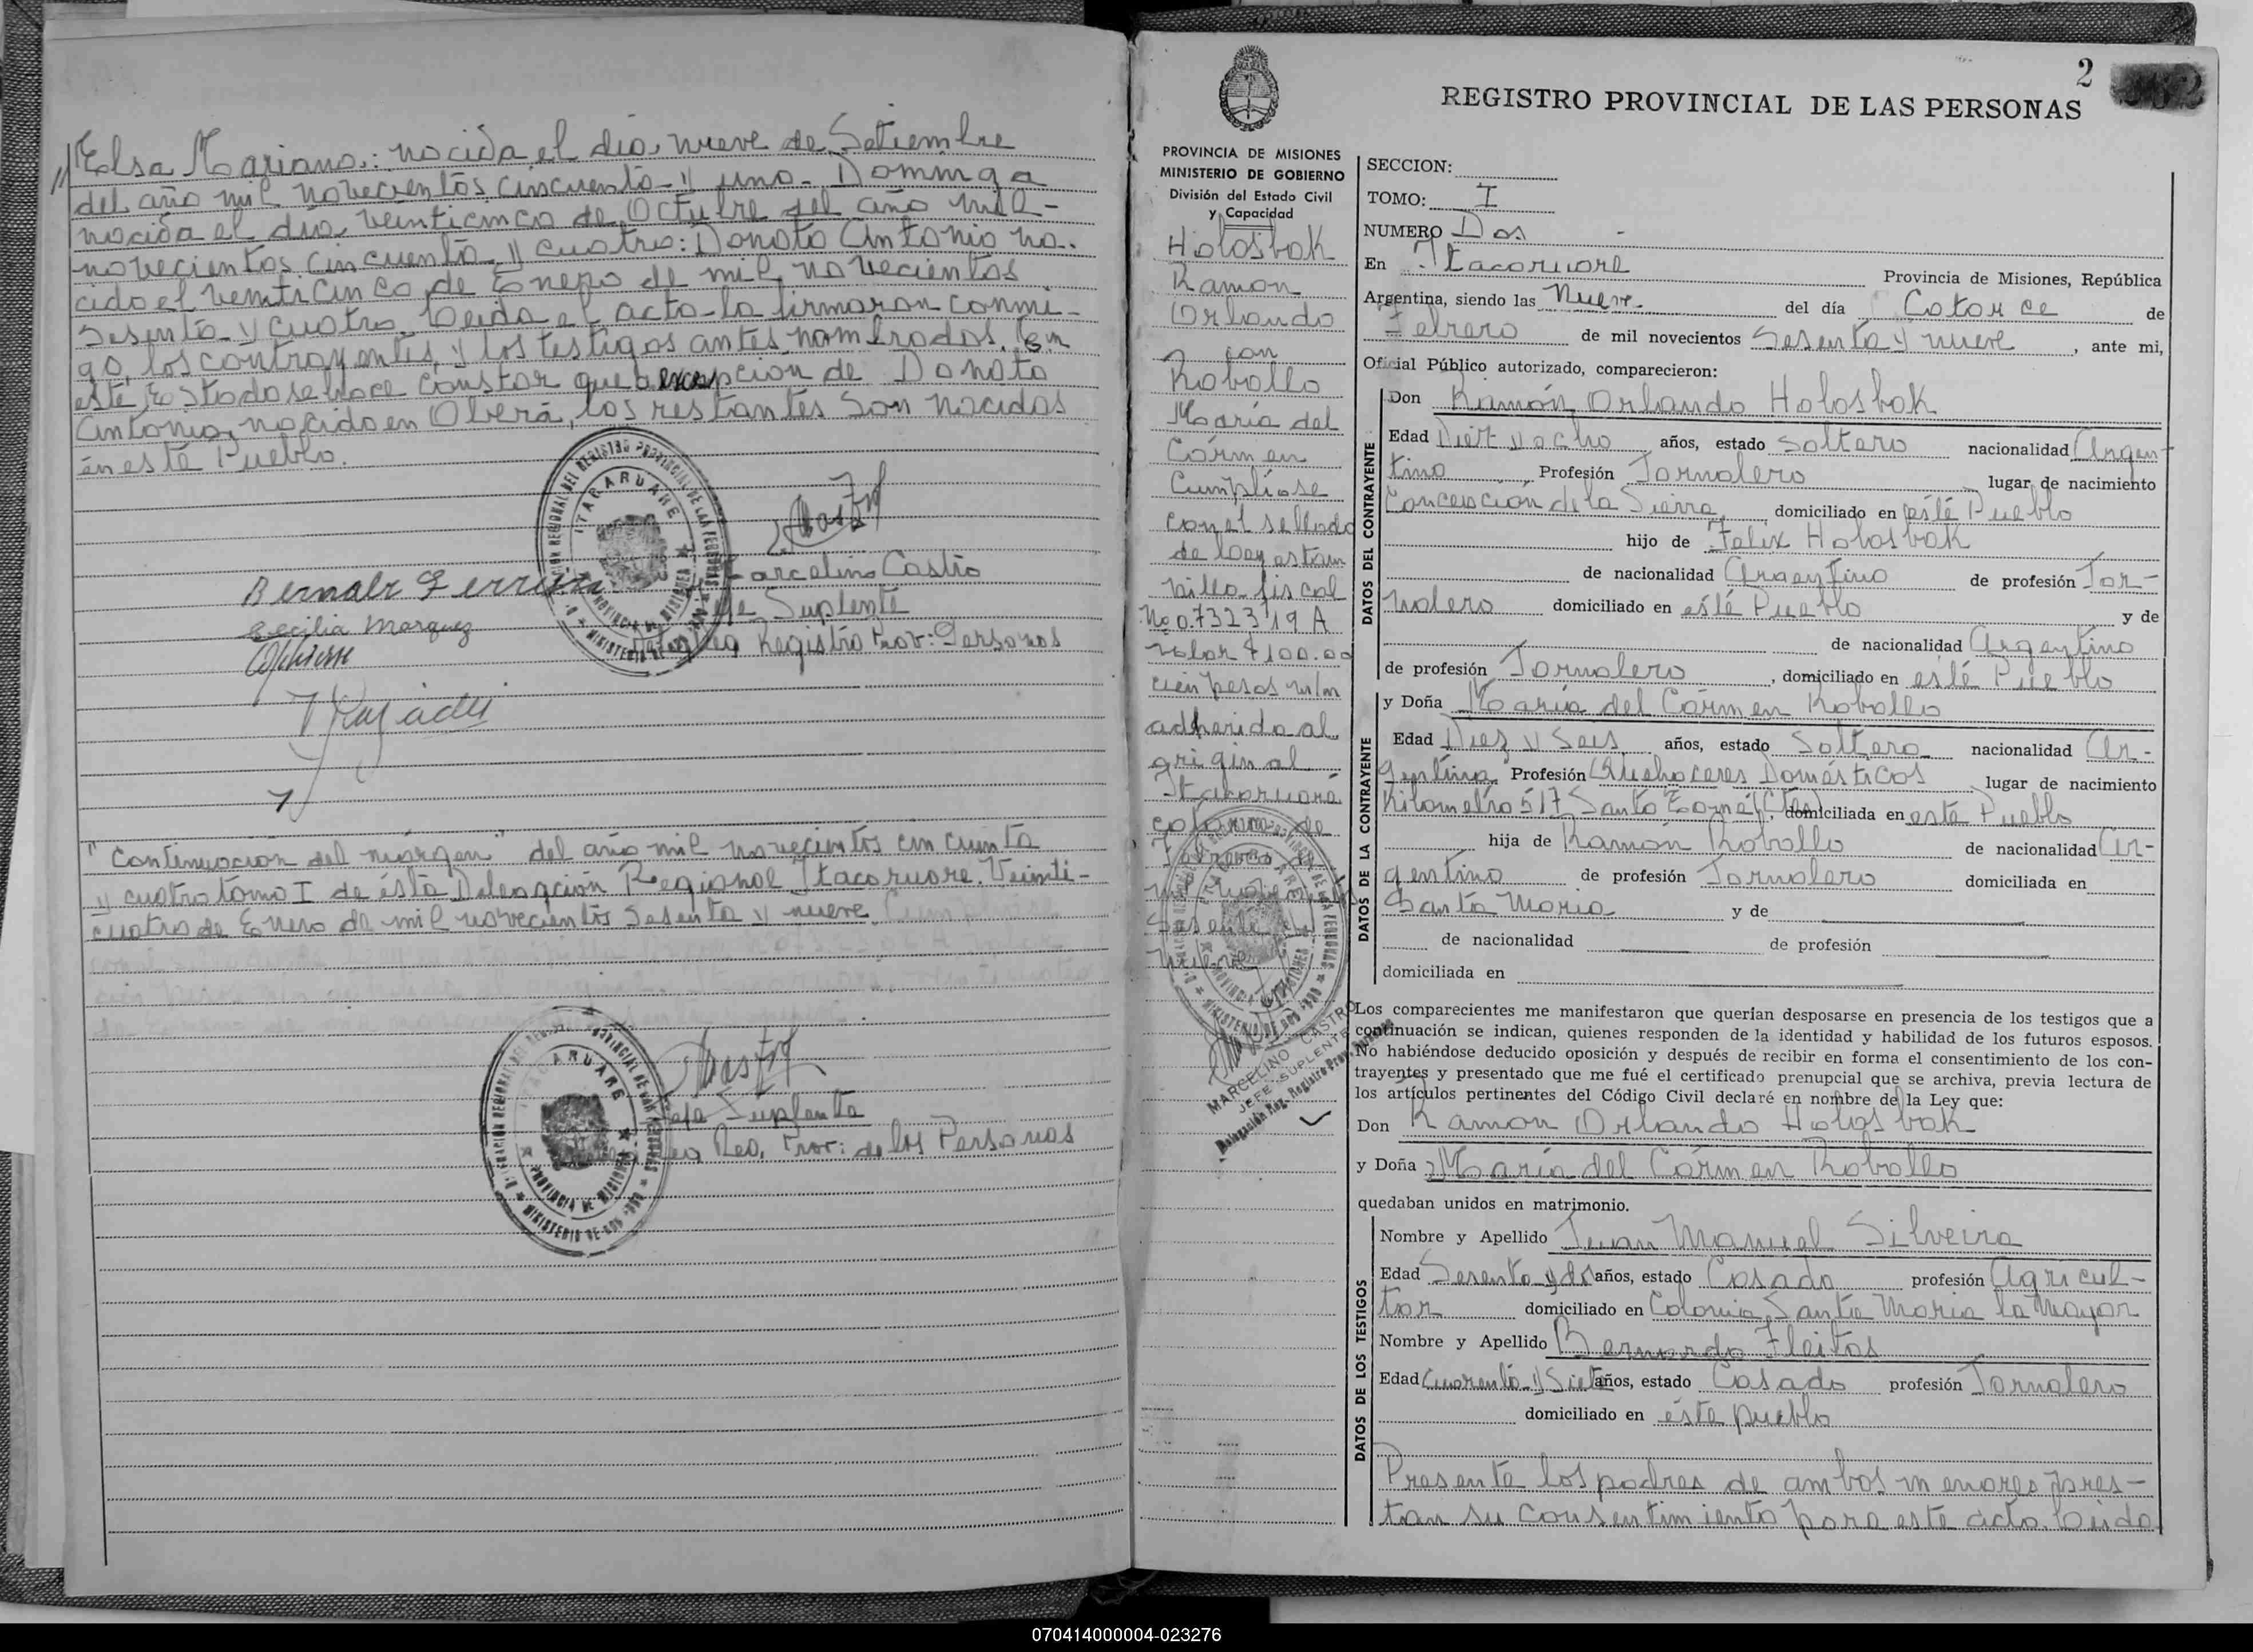 Elsa Mariana: nacida el día nueve de Setiembre
del año mil novecientos cincuenta y uno. Dominga
nacida el día veinticinco de Octubre del año mil-
novecientos cincuenta y cuatro: Donato Antonio na-
cido el veinticinco de Enero de mil novecientos
sesenta y cuatro. Leida el acta la firmaron conmi-
go, los contrayentes, y los testigos antes nombrados. En
este Estado se hace constar que a excepción de Donato
Antonio, nacido en Oberá, los restantes son nacidos
en este Pueblo.
Marcelino Castro
Jefe Suplente
Registro Prov: Personas
Cecilia Marquez
"Continuación del márgen" del año mil novecientos cincuenta
y cuatro tomo I de ésta Delegación Regional Itacoruare. Veinti-
cuatro de Enero de mil novecientos sesenta y nueve.
Jefe Suplente
Reg. Prov: de las Personas
2
REGISTRO PROVINCIAL DE LAS PERSONAS
PROVINCIA DE MISIONES
MINISTERIO DE GOBIERNO
División del Estado Civil
y Capacidad
Holosbak
Ramon
Orlando
con
Robollo
María del
Cármen
Cumpliose
con el sellado
de Ley estam
pilla fiscal
No 0.732319 A
valor $ 100.00
cien pesos m/n
adherida al
original
Itacoruaré
catorce de
Febrero de
mil novecientos
sesenta y
nueve
MARCELINO CASTRO
JEFE SUPLENTE
Delegación Reg. Registro Prov. Personas
SECCION:
TOMO: I
NUMERO Dos
En Itacoruare Provincia de Misiones, República
Argentina, siendo las Nueve del día Catorce de
Febrero de mil novecientos Sesenta y nueve, ante mi,
Oficial Público autorizado, comparecieron:
DATOS DEL CONTRAYENTE
Don Ramón Orlando Holosbak
Edad Diez y ocho años, estado Soltero nacionalidad Argen-
tino Profesión Jornalero lugar de nacimiento
Concepcion de la Sierra, domiciliado en éste Pueblo
hijo de Felix Holosbak
de nacionalidad Argentino de profesión Jor-
nalero domiciliado en esté Pueblo y de
de nacionalidad Argentino
de profesión Jornalero, domiciliado en esté Pueblo
DATOS DE LA CONTRAYENTE
y Doña María del Cármen Robollo
Edad Diez y Seis años, estado Soltera nacionalidad Ar-
gentina Profesión Quehaceres Domésticos lugar de nacimiento
Kilometro 517 Santo Tomé (Ctes), domiciliada en este Pueblo
hija de Ramón Robollo de nacionalidad Ar-
gentino de profesión Jornalero domiciliada en
Santa Maria y de
de nacionalidad de profesión
domiciliada en
Los comparecientes me manifestaron que querían desposarse en presencia de los testigos que a
continuación se indican, quienes responden de la identidad y habilidad de los futuros esposos.
No habiéndose deducido oposición y después de recibir en forma el consentimiento de los con-
trayentes y presentado que me fué el certificado prenupcial que se archiva, previa lectura de
los artículos pertinentes del Código Civil declaré en nombre de la Ley que:
Don Ramón Orlando Holosbak
y Doña María del Cármen Robollo
quedaban unidos en matrimonio.
DATOS DE LOS TESTIGOS
Nombre y Apellido Juan Manuel Silveira
Edad Sesenta y dos años, estado Casado profesión Agricul-
tor domiciliado en Colonia Santa Maria la Mayor
Nombre y Apellido Bernardo Fleitas
Edad Cuarenta y Siete años, estado Casado profesión Jornalero
domiciliado en éste pueblo
Presente los padres de ambos menores pres-
tan su consentimiento para este acto. Leida
070414000004-023276